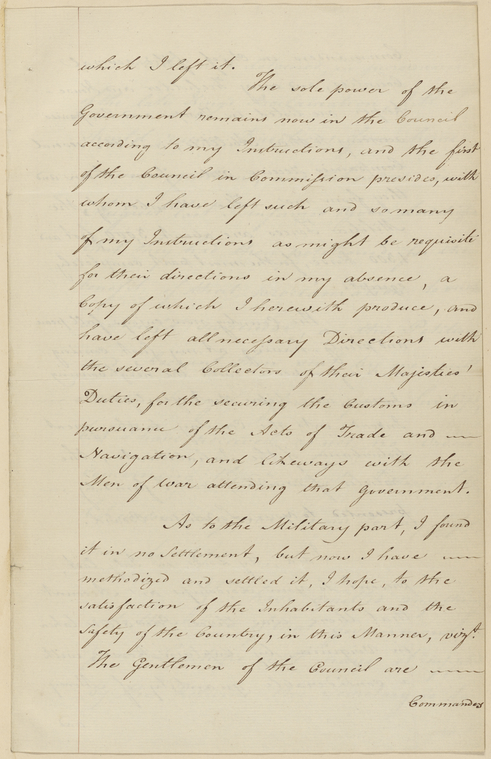 which I left it.
The sole power of the
Government remains now in the Council
according to my Instructions, and the first
of the Council in Commission presides, with
whom I have left such and so many
of my Instructions as might be requisite
for their directions in my absence, a
Copy of which I herewith produce, and
have left all necessary Directions with
the several Collectors of their Majesties'
Duties, for the securing the Customs in
pursuance of the Acts of Trade and —
Navigation, and likeways with the
Men of War attending that Government.
As to the Military part, I found
it in no Settlement, but now I have —
methodized and settled it, I hope, to the
satisfaction of the Inhabitants and the
Safety of the Country, in this Manner, vizt.
The Gentlemen of the Council are —
Commanders